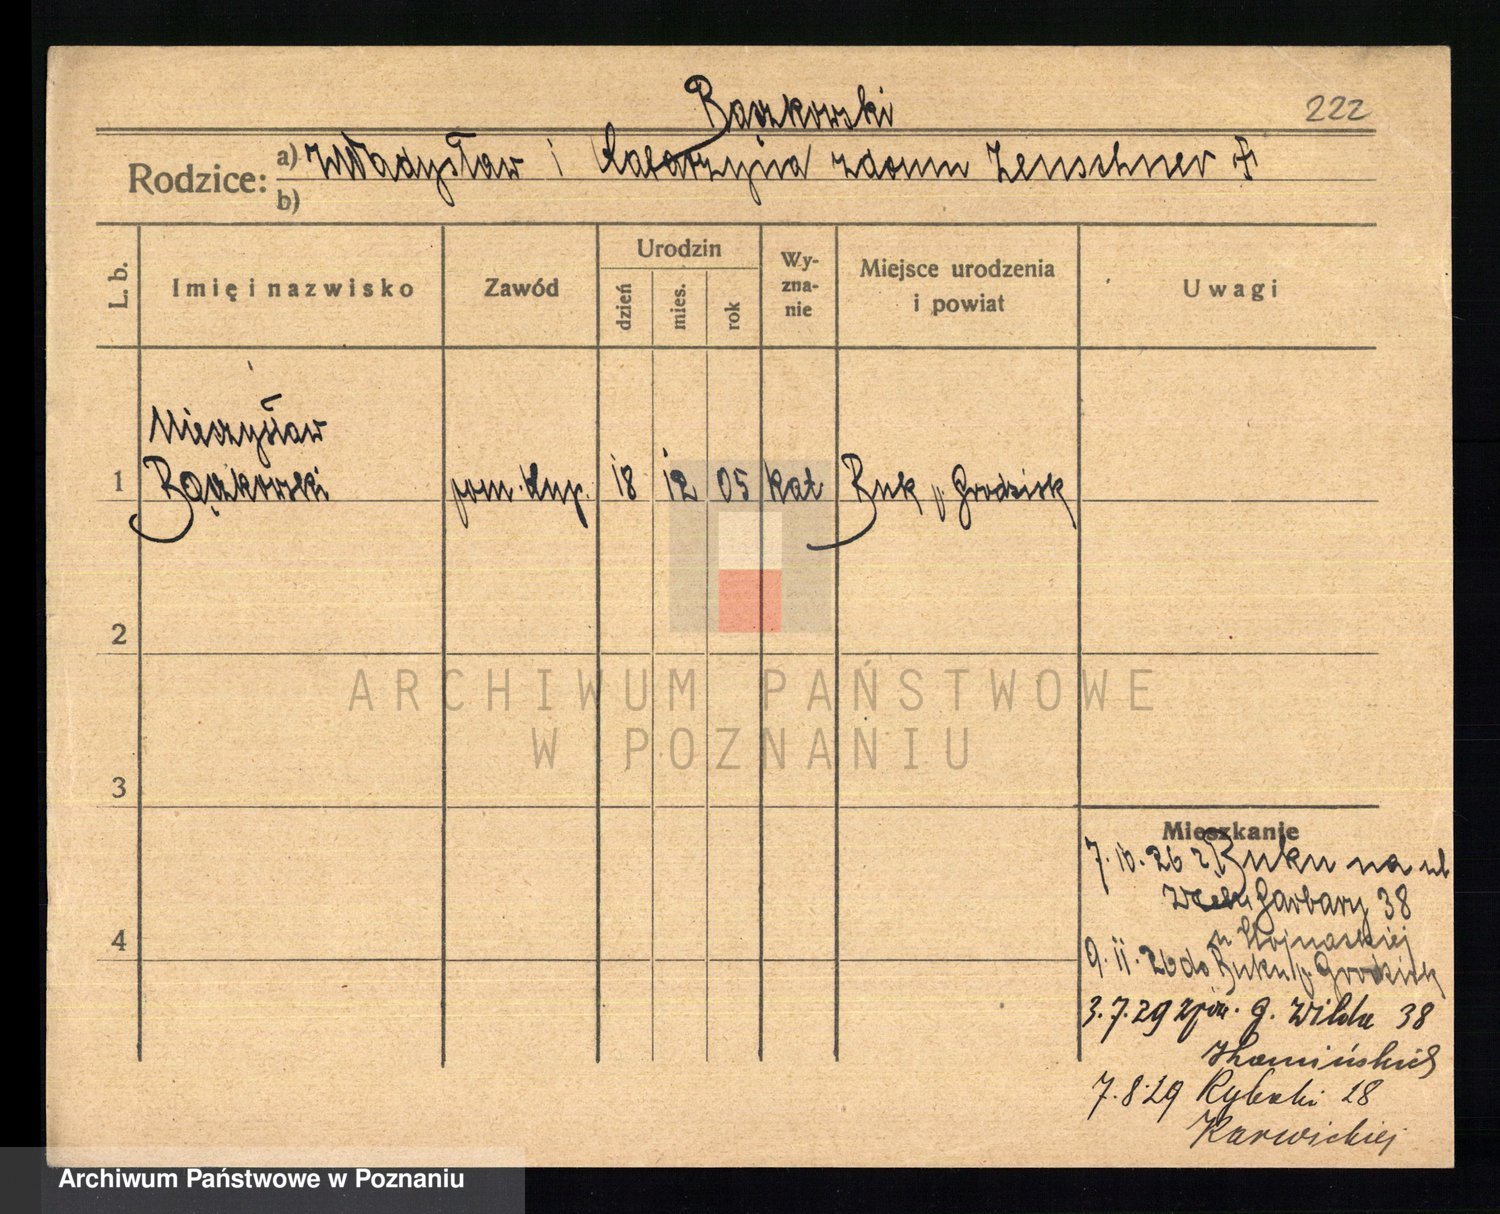 Bączkowski
222
Rodzice: a) Władysław i Katarzyna z domu Leuschner †
b)
L. b.
Imię i nazwisko
Zawód
Urodzin
dzień
mies.
rok
Wy-
zna-
nie
Miejsce urodzenia
i powiat
Uwagi
Mieczysław
1 Bączkowski pom. kup. 18 12 05 kat Buk p. Grodzisk
2
ARCHIWUM PAŃSTWOWE
W POZNANIU
3
Mieszkanie
7.10.26 z Buku na ul
Garbary 38
4
9.11.26 do Buku p. Grodzisk
3.7.29 G. Wilda 38
7.8.29 Rybaki 28
Karwickiej
Archiwum Państwowe w Poznaniu